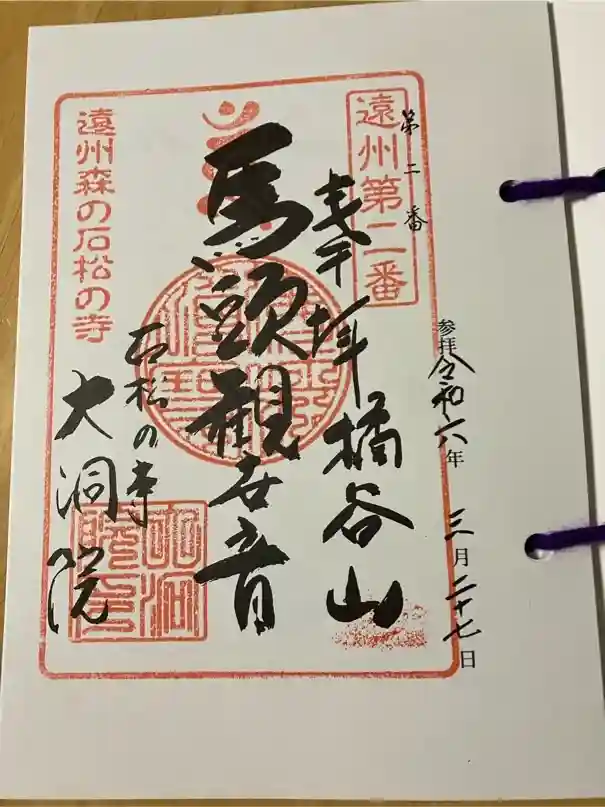 第二番
遠州第二番
参拝令和六年三月二十七日
奉拝橘谷山
馬頭観世音
石松の寺
大洞院
遠州森の石松の寺